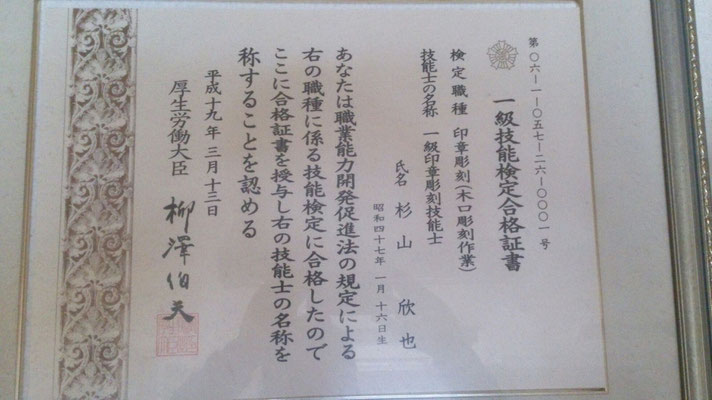 第〇六-一-〇五七-二六-〇〇〇一号
一級技能検定合格証書
検定職種 印章彫刻(木口彫刻作業)
技能士の名称 一級印章彫刻技能士
氏名 杉山 欣也
昭和四十七年 一月 十六日生
あなたは職業能力開発促進法の規定による
右の職種に係る技能検定に合格したので
ここに合格証書を授与し右の技能士の名称を
称することを認める
平成十九年 三月 十三日
厚生労働大臣 柳澤伯夫